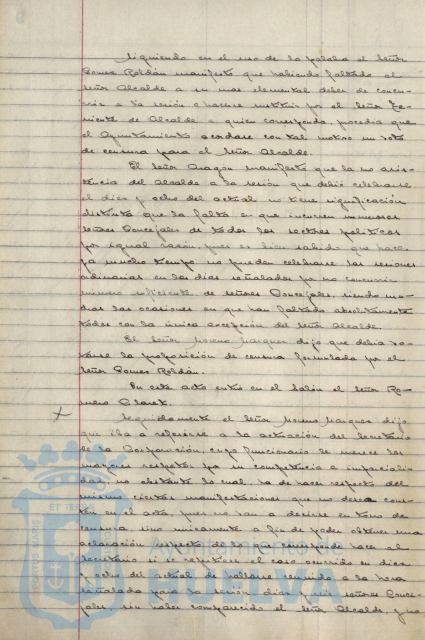 Siguiendo en el uso de la palabra el Señor
Gomez Roldán manifestó que habiendo faltado el
Señor Alcalde a su mas elemental deber de concu-
rrir a la sesión o hacerse sustituir por el Señor Te-
niente de Alcalde a quien corresponda, procedia que
el Ayuntamiento acordase con tal motivo un voto
de censura para el Señor Alcalde.
El Señor Aragon manifestó que la no asis-
tencia del Alcalde a la sesión que debió celebrarse
el diez y ocho del actual no tiene significación
distinta que la falta en que incurren numerosos
señores Concejales de todos los sectores politicos
por igual razón, pues es bien sabido que hace
ya mucho tiempo no pueden celebrarse las sesiones
ordinarias en los dias señalados por no concurrir
número suficiente de señores Concejales, siendo mu-
chas las ocasiones en que han faltado absolutamente
todos con la única excepción del Señor Alcalde.
El Señor Moreno Marquez dijo que debia vo-
tarse la proposición de censura formulada por el
Señor Gomez Roldán.
En este acto entra en el Salón el Señor Ro-
mero Claret.
Seguidamente el Señor Moreno Marquez dijo
que iba a referirse a la actuación del Secretario
de la Corporación, cuyo funcionario le merece los
mayores respetos por su competencia e imparciali-
dad, no obstante lo cual, ha de hacer respecto del
mismo ciertas manifestaciones que no desea cons-
ten en el acta, pues no van a decirse en tono de
censura sino unicamente a fin de poder obtener una
aclaración respecto de lo que corresponde hacer al
Secretario si se repitiese el caso ocurrido en diez
y ocho del actual de hallarse reunido a la hora
señalada para la sesión diez y seis señores Conce-
jales, sin haber comparecido el Señor Alcalde, y no
PORTUS MARIS ET TE
Ayuntamiento de